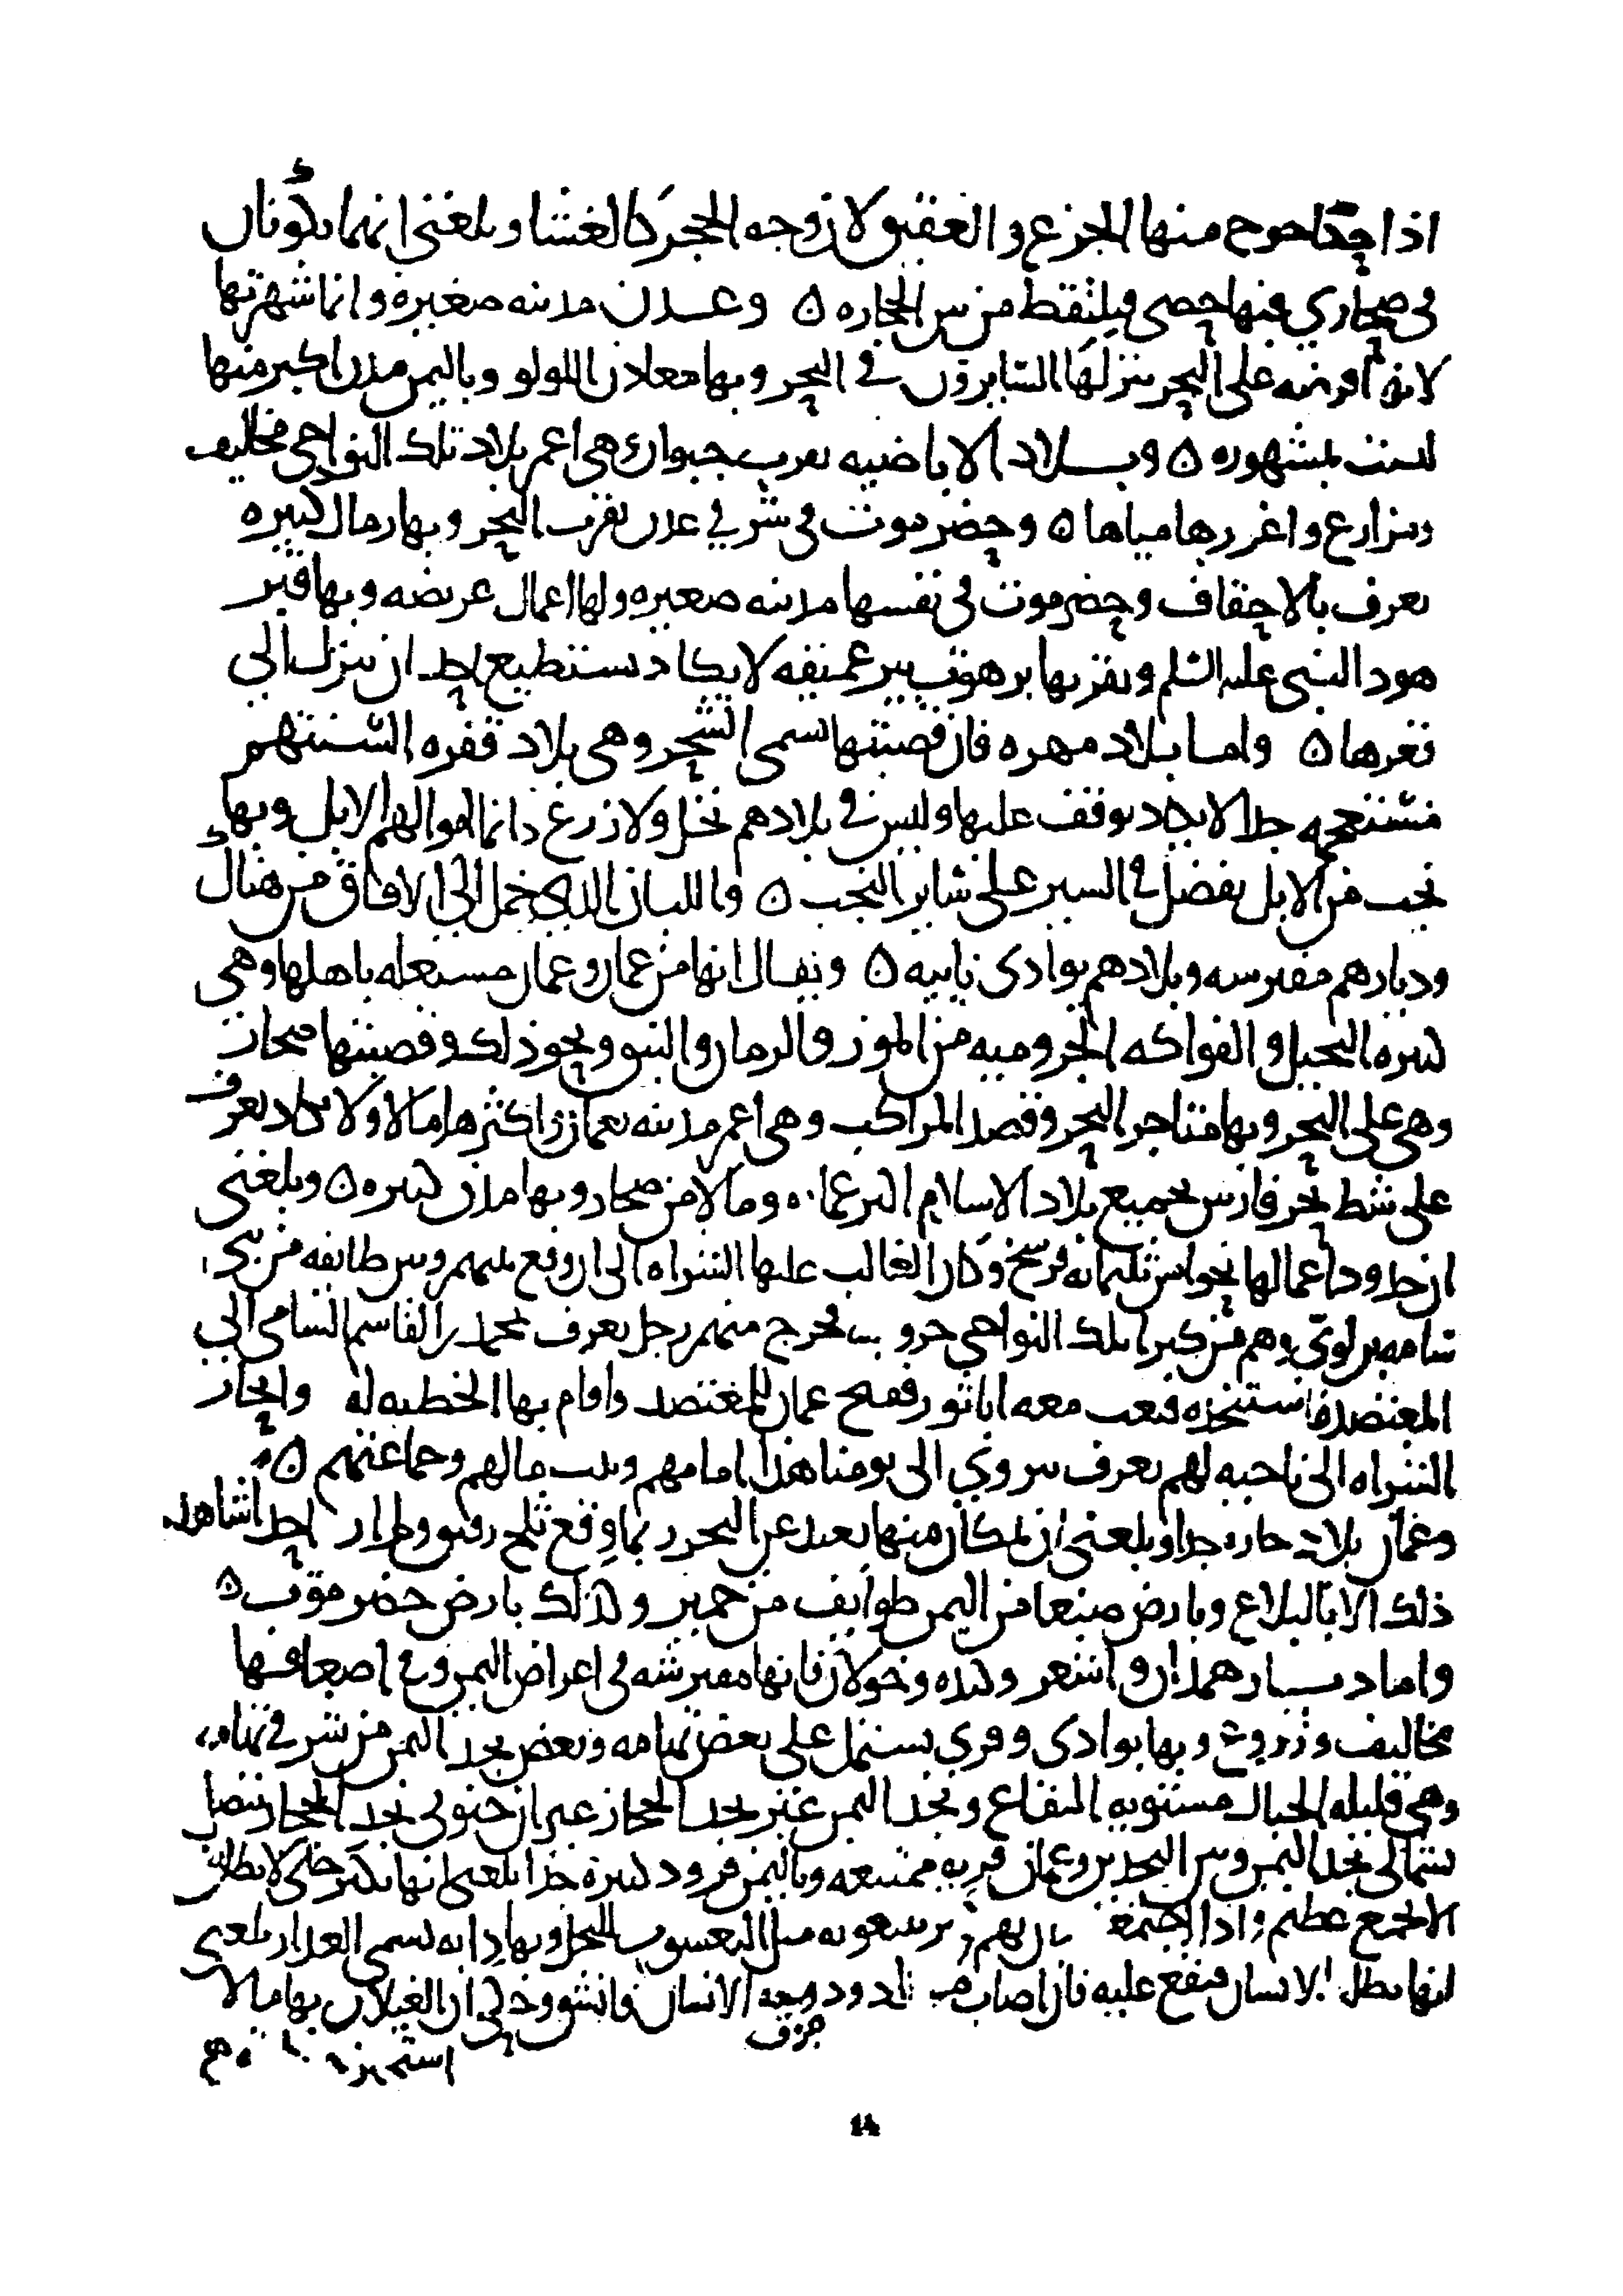 اذا حكا خرج منها الجزع والعقيق لان وجه الحجر كالغشا وبلغنى انهما يكونان
فى صحاري فيها حصى فيلتقط من بين الحجاره ٥ وعدن مدينه صغيره وانما شهرتها
لانها فرضه على البحر ينزلها السايرون في البحر وبها معادن اللولو وباليمن مدن اكبر منها
ليست بمشهوره ٥ وبلاد الاباضيه بقرب حيوان هى اعمر بلاد تلك النواحي مخاليف
ومزارع واغزرها مياها ٥ وحضرموت فى شرقي عدن بقرب البحر وبها رمال كثيره
تعرف بالاحقاف وحضرموت فى نفسها مدينه صغيره ولها اعمال عريضه وبها قبر
هود النبى عليه السلم وبقربها برهوت بير عميقه لا يكاد يستطيع احد ان ينزل الى
قعرها ٥ واما بلاد مهره فان قصبتها تسمى الشحر وهى بلاد قفره السنتهم
مستعجمه جدا لا يكاد يوقف عليها وليس فى بلادهم نخل ولا زرع وانما اموالهم الابل وبها
نجب من الابل يفضل فى السير على ساير النجب ٥ واللبان الذى يحمل الى الافاق من هناك
وديارهم مفترشه وبلادهم بوادى نايه ٥ ويقال انها من عمان وعمان مستقله باهلها وهى
كثيره النخيل والفواكه الجروميه من الموز والرمان والنبق ونحو ذلك وقصبتها صحار
وهى على البحر وبها متاجر البحر وقصد المراكب وهى اعمر مدينه بعمان واكثرها مالا ولا تكاد تعرف
على شط بحر فارس بجميع بلاد الاسلام اكثر عماره ومالا من صحار وبها مدن كثيره ٥ وبلغنى
ان حدود اعمالها نحوا من ثلثمائه فرسخ وكان الغالب عليها الشراه الى ان وقع بينهم وبين طائفه من بنى
سامه بن لوي وهم من كبرا تلك النواحي حروب فخرج منهم رجل يعرف بمحمد بن القاسم السامى الى
المعتضد فاستنجده فبعث معه ابا ثور ففتح عمان للمعتضد واقام بها الخطبه له وانحاز
الشراه الى ناحيه لهم تعرف بنزوي الى يومنا هذا امامهم وبيت مالهم وجماعتهم ٥
وعمان بلاد حاره جدا وبلغنى ان بمكان منها بعيد عن البحر ربما وقع ثلج رقيق ولم ار احدا شاهد
ذلك الا بالبلاغ وبارض صنعا من اليمن طوايف من حمير وكذلك بارض حضرموت ٥
واما ديار همدان واشعر وكنده وخولان فانها مفترشه فى اعراض اليمن وفى اضعافها
مخاليف وزروع وبها بوادى وقرى يشتمل على بعض تهامه وبعض نجد اليمن من شرقي تهامه
وهى قليله الجبال مستويه البقاع ونجد اليمن غير نجد الحجاز غير ان جنوبى نجد الحجاز يتصل
بشمالى نجد اليمن وبين النجدين وعمان بريه ممتنعه وباليمن قرود كثيره جدا بلغنى انها تكثر حتى لا تطاق
الا بجمع عظيم واذا اجتمعت كان لهم كبير يتبعونه مثل اليعسوب للنحل وبها دابه تسمى العدار بلغنى
انها تطلب الانسان فتقع عليه فان اصابت دود جوف الانسان فانشق وحكى ان الغيلان بها ما لا
استجيز
14